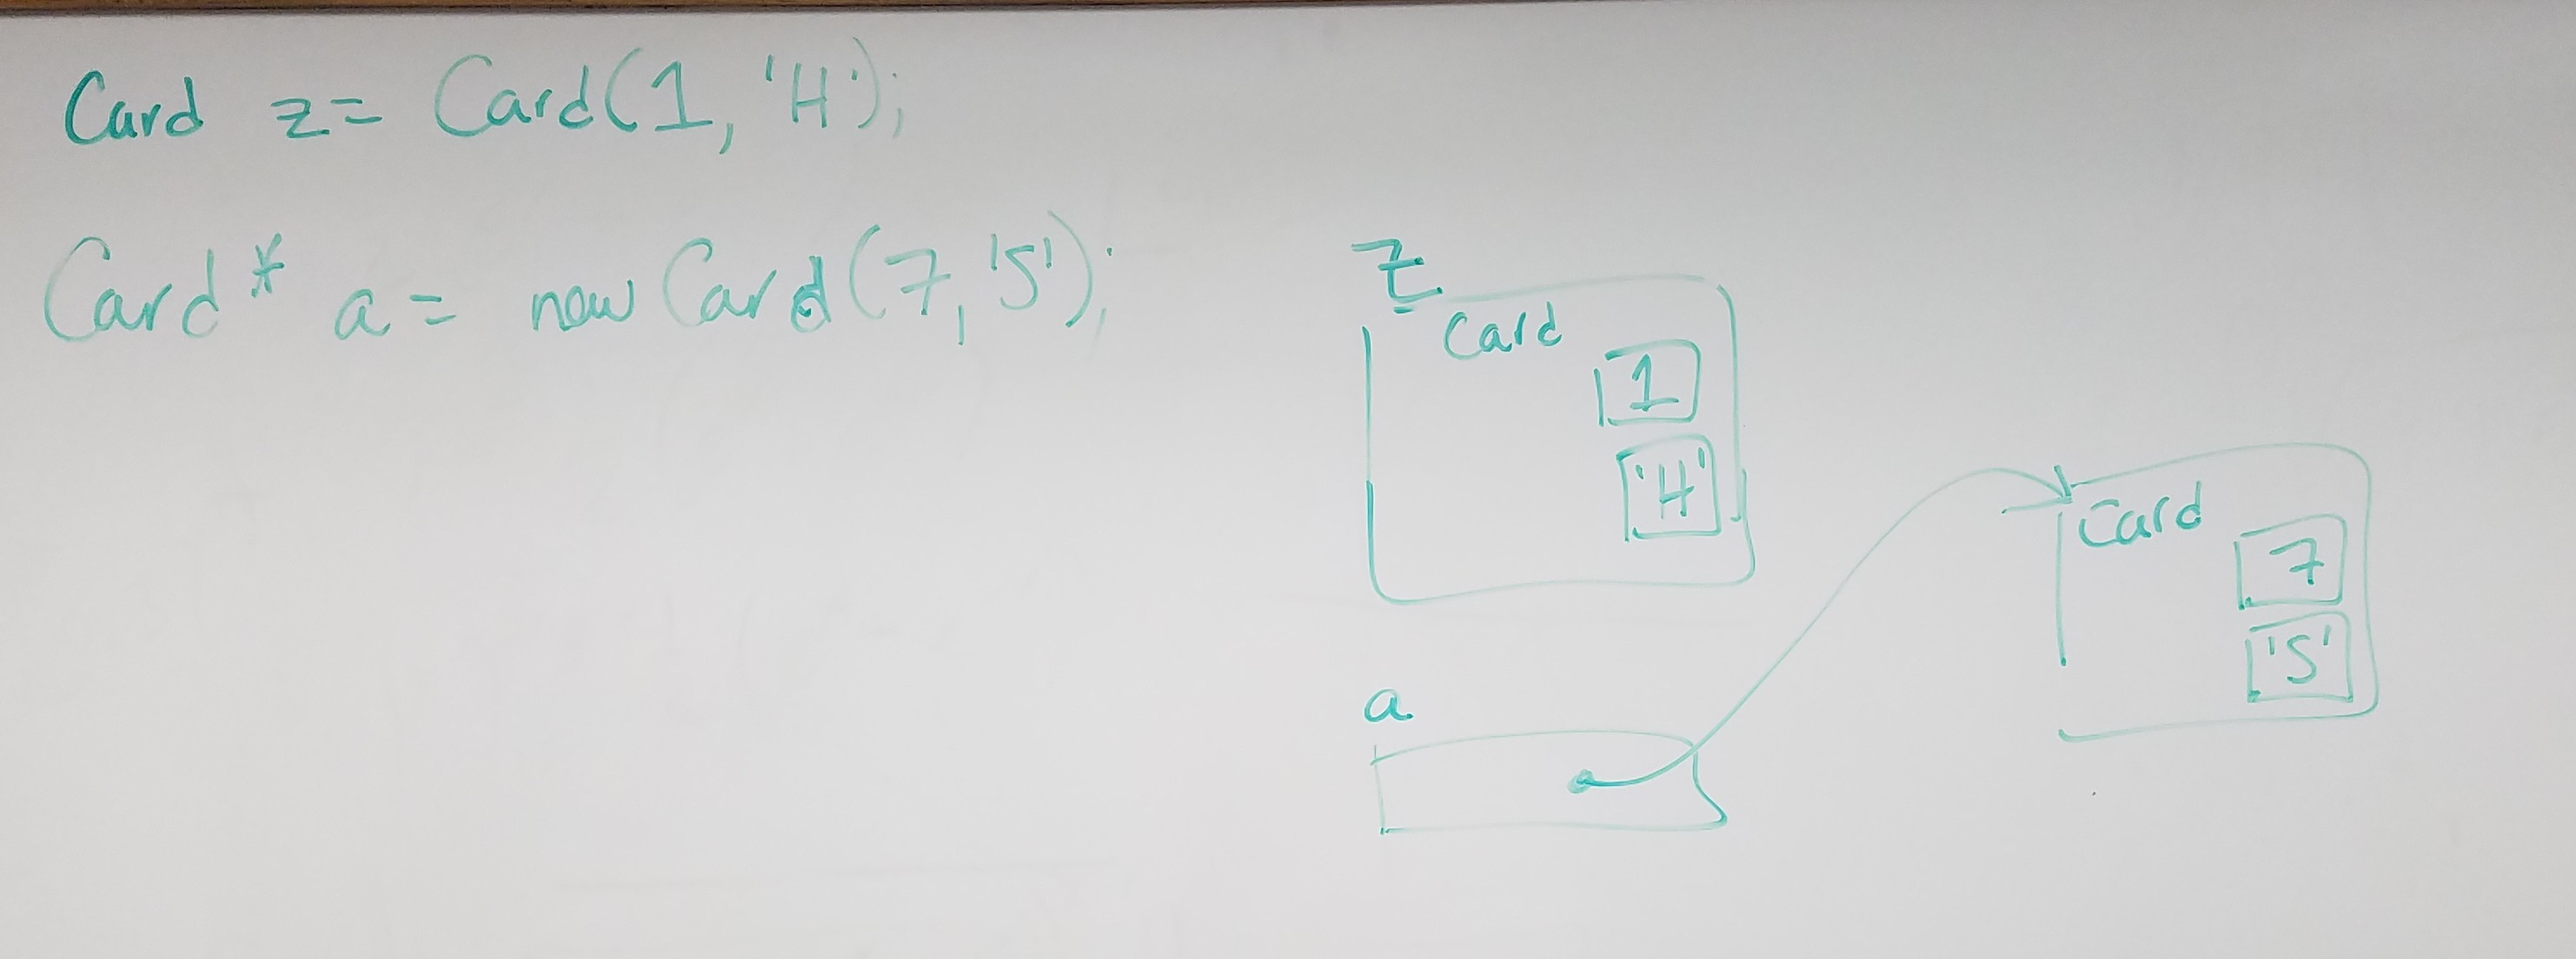 Card z = Card(1, 'H');
Card* a = new Card(7, 'S');
z
Card
1
'H'
Card
7
'S'
a